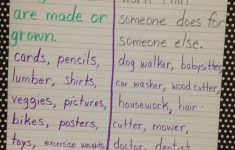 are made or
grown.
cards, pencils,
lumber, shirts,
veggies, pictures,
bikes, posters,
toys, exercise weights
someone does for
someone else.
dog walker, babysitter,
car washer, wood cutter,
housework, hair-
cutter, mower,
doctor, dentist